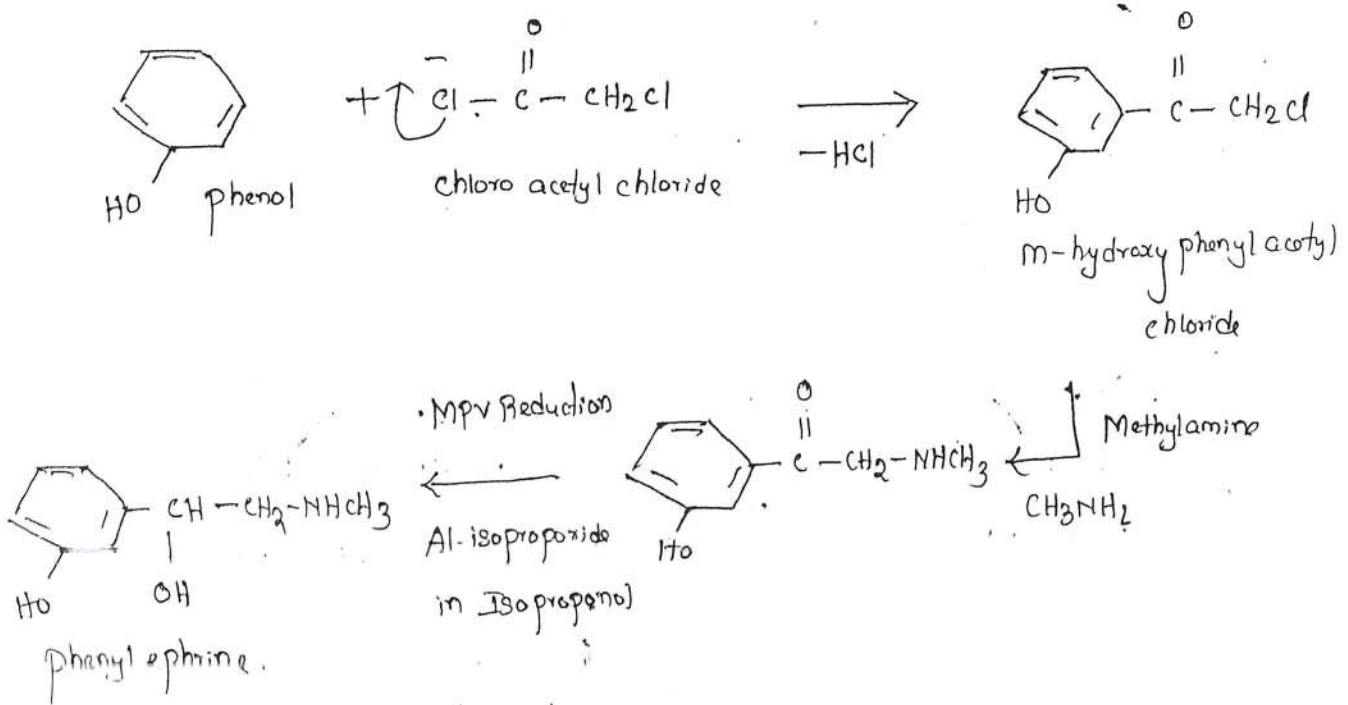 O
||
+ Cl - C - CH2Cl
-HCl
HO phenol
chloro acetyl chloride
O
||
C - CH2Cl
HO
m-hydroxy phenyl acotyl
chloride
Methylamine
CH3NH2
O
||
C - CH2 - NHCH3
HO
MPV Reduction
Al-isoproporide
in Isopropanol
CH - CH2 - NHCH3
|
OH
HO
phenyl ephrine.